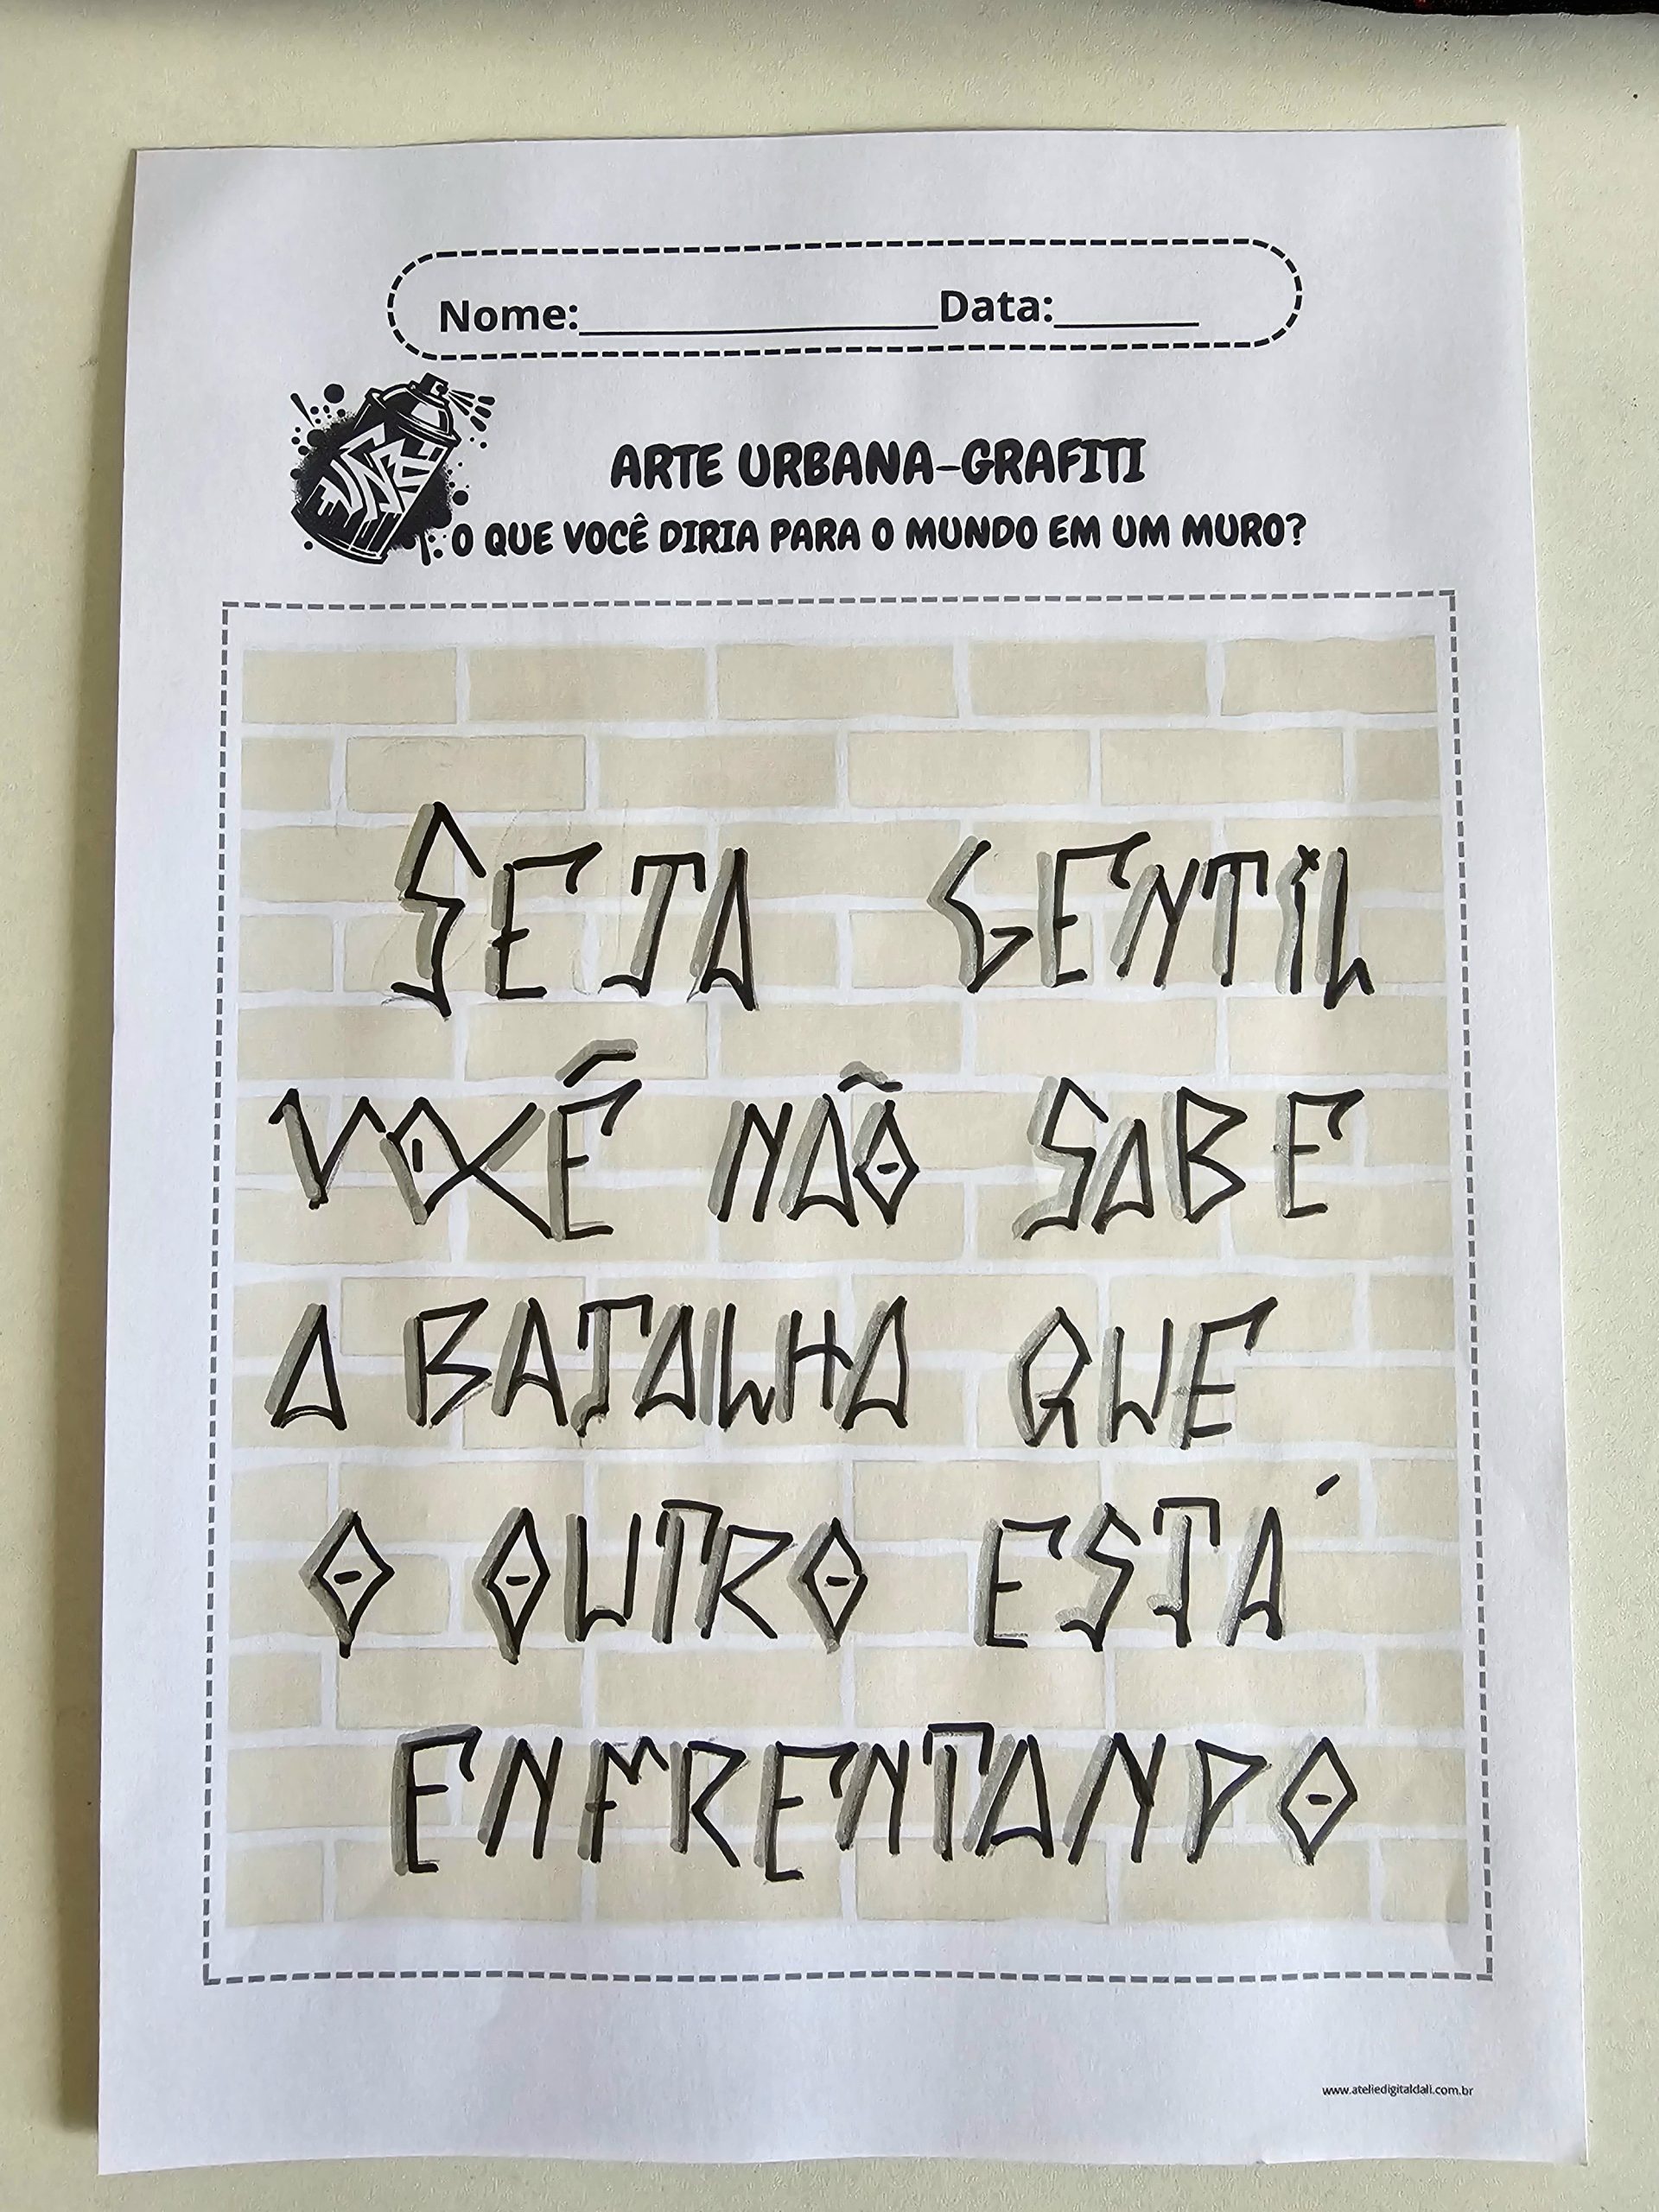 Nome:____________________Data:________
ARTE URBANA-GRAFITI
O QUE VOCÊ DIRIA PARA O MUNDO EM UM MURO?
SEJA GENTIL
VOCÊ NÃO SABE
A BATALHA QUE
O OUTRO ESTÁ
ENFRENTANDO
www.ateliedigitaldali.com.br